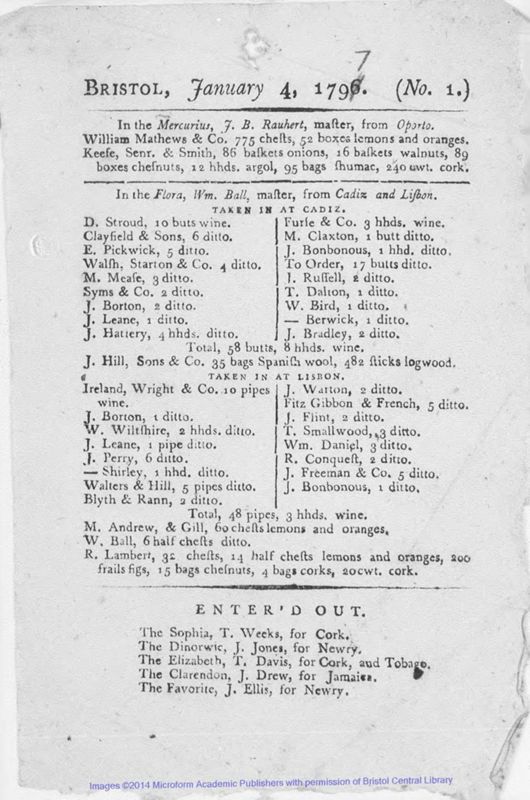 7
BRISTOL, January 4, 1796. (No. 1.)
In the Mercurius, J. B. Rauhert, maſter, from Oporto.
William Mathews & Co. 775 cheſts, 52 boxes lemons and oranges.
Keeſe, Senr. & Smith, 86 baſkets onions, 16 baſkets walnuts, 89
boxes cheſnuts, 12 hhds. argol, 95 bags ſhumac, 240 cwt. cork.
In the Flora, Wm. Ball, maſter, from Cadiz and Liſbon.
TAKEN IN AT CADIZ.
D. Stroud, 10 buts wine.
Clayfield & Sons, 6 ditto.
E. Pickwick, 5 ditto.
Walſh, Starton & Co. 4 ditto.
M. Meaſe, 3 ditto.
Syms & Co. 2 ditto.
J. Borton, 2 ditto.
J. Leane, 1 ditto.
J. Hattery, 4 hhds. ditto.
Furſe & Co. 3 hhds. wine.
M. Claxton, 1 butt ditto.
J. Bonbonous, 1 hhd. ditto.
To Order, 17 butts ditto.
J. Ruſſell, 2 ditto.
T. Dalton, 1 ditto.
W. Bird, 1 ditto.
— Berwick, 1 ditto.
J. Bradley, 2 ditto.
Total, 58 butts, 8 hhds. wine.
J. Hill, Sons & Co. 35 bags Spaniſh wool, 482 ſticks logwood.
TAKEN IN AT LISBON.
Ireland, Wright & Co. 10 pipes
wine.
J. Borton, 1 ditto.
W. Wiltſhire, 2 hhds. ditto.
J. Leane, 1 pipe ditto.
J. Perry, 6 ditto.
— Shirley, 1 hhd. ditto.
Walters & Hill, 5 pipes ditto.
Blyth & Rann, 2 ditto.
J. Warton, 2 ditto.
Fitz Gibbon & French, 5 ditto.
J. Flint, 2 ditto.
T. Smallwood, 3 ditto.
Wm. Daniel, 3 ditto.
R. Conqueſt, 2 ditto.
J. Freeman & Co. 5 ditto.
J. Bonbonous, 1 ditto.
Total, 48 pipes, 3 hhds. wine.
M. Andrew, & Gill, 60 cheſts lemons and oranges.
W. Ball, 6 half cheſts ditto.
R. Lambert, 32 cheſts, 14 half cheſts lemons and oranges, 200
frails figs, 15 bags cheſnuts, 4 bags corks, 20 cwt. cork.
ENTER'D OUT.
The Sophia, T. Weeks, for Cork.
The Dinorwic, J. Jones, for Newry.
The Elizabeth, T. Davis, for Cork, and Tobago.
The Clarendon, J. Drew, for Jamaica.
The Favorite, J. Ellis, for Newry.
Images ©2014 Microform Academic Publishers with permission of Bristol Central Library